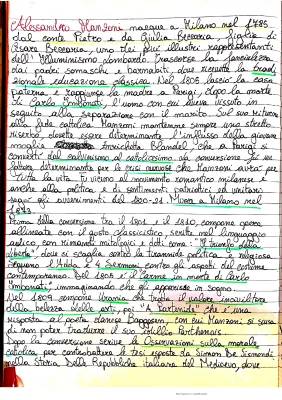 Alessandro Manzoni nacque a Milano nel 1785
dal conte Pietro e da Giulia Beccaria figlia di
Cesare Beccaria, uno dei più illustri rappresentanti
dell'Illuminismo lombardo. Trascorse la fanciullezza
dai padri somaschi e barnabiti dove ricevette la tradi
zionale educazione classica. Nel 1805 lasciò la casa
paterna e raggiunse la madre a Parigi, dopo la morte
di Carlo Imbonati, l'uomo con cui aveva vissuto in
seguito alla separazione con il marito. Sul suo ritorno
alla fede cattolica Manzoni mantenne sempre uno stretto
riserbo, dovette essere determinante l'influsso della giovane
moglie Enrichetta Blondel, che a Parigi si
convertì dal calvinismo al cattolicesimo. La conversione fu un
fattore determinante per le crisi nervose che Manzoni avrà per
tutta la vita. Fu vicino al movimento romantico milanese e
anche alla politica e di sentimenti patriottici ed unitari
seguì gli avvenimenti del 1820-21. Muore a Milano nel
1873.
Prima della conversione tra il 1801 e il 1810, compone opere
allineate con il gusto classicistico, scritte nel linguaggio
aulico, con rimandi mitologici e dotti come: "Il trionfo della
libertà" dove si scaglia contro la tirannide politica e religiosa
Seguono l'Adda e 4 Sermoni contro gli aspetti del costume
contemporaneo. Nel 1805 è il Carme in morte di Carlo
Imbonati, immaginando che gli apparisse in sogno.
Nel 1809 compone Urania che tratta il valore incivilitore
della bellezza delle arti, poi "A Parteneide" che è una
risposta al poeta danese Baggesen, con cui Manzoni si scusa
di non poter tradurre il suo idillio Parthenais.
Dopo la conversione scrive le Osservazioni sulla morale
cattolica per controbattere le tesi esposte da Simon De Sismondi
nella Storia delle Repubbliche italiane del Medioevo, dove